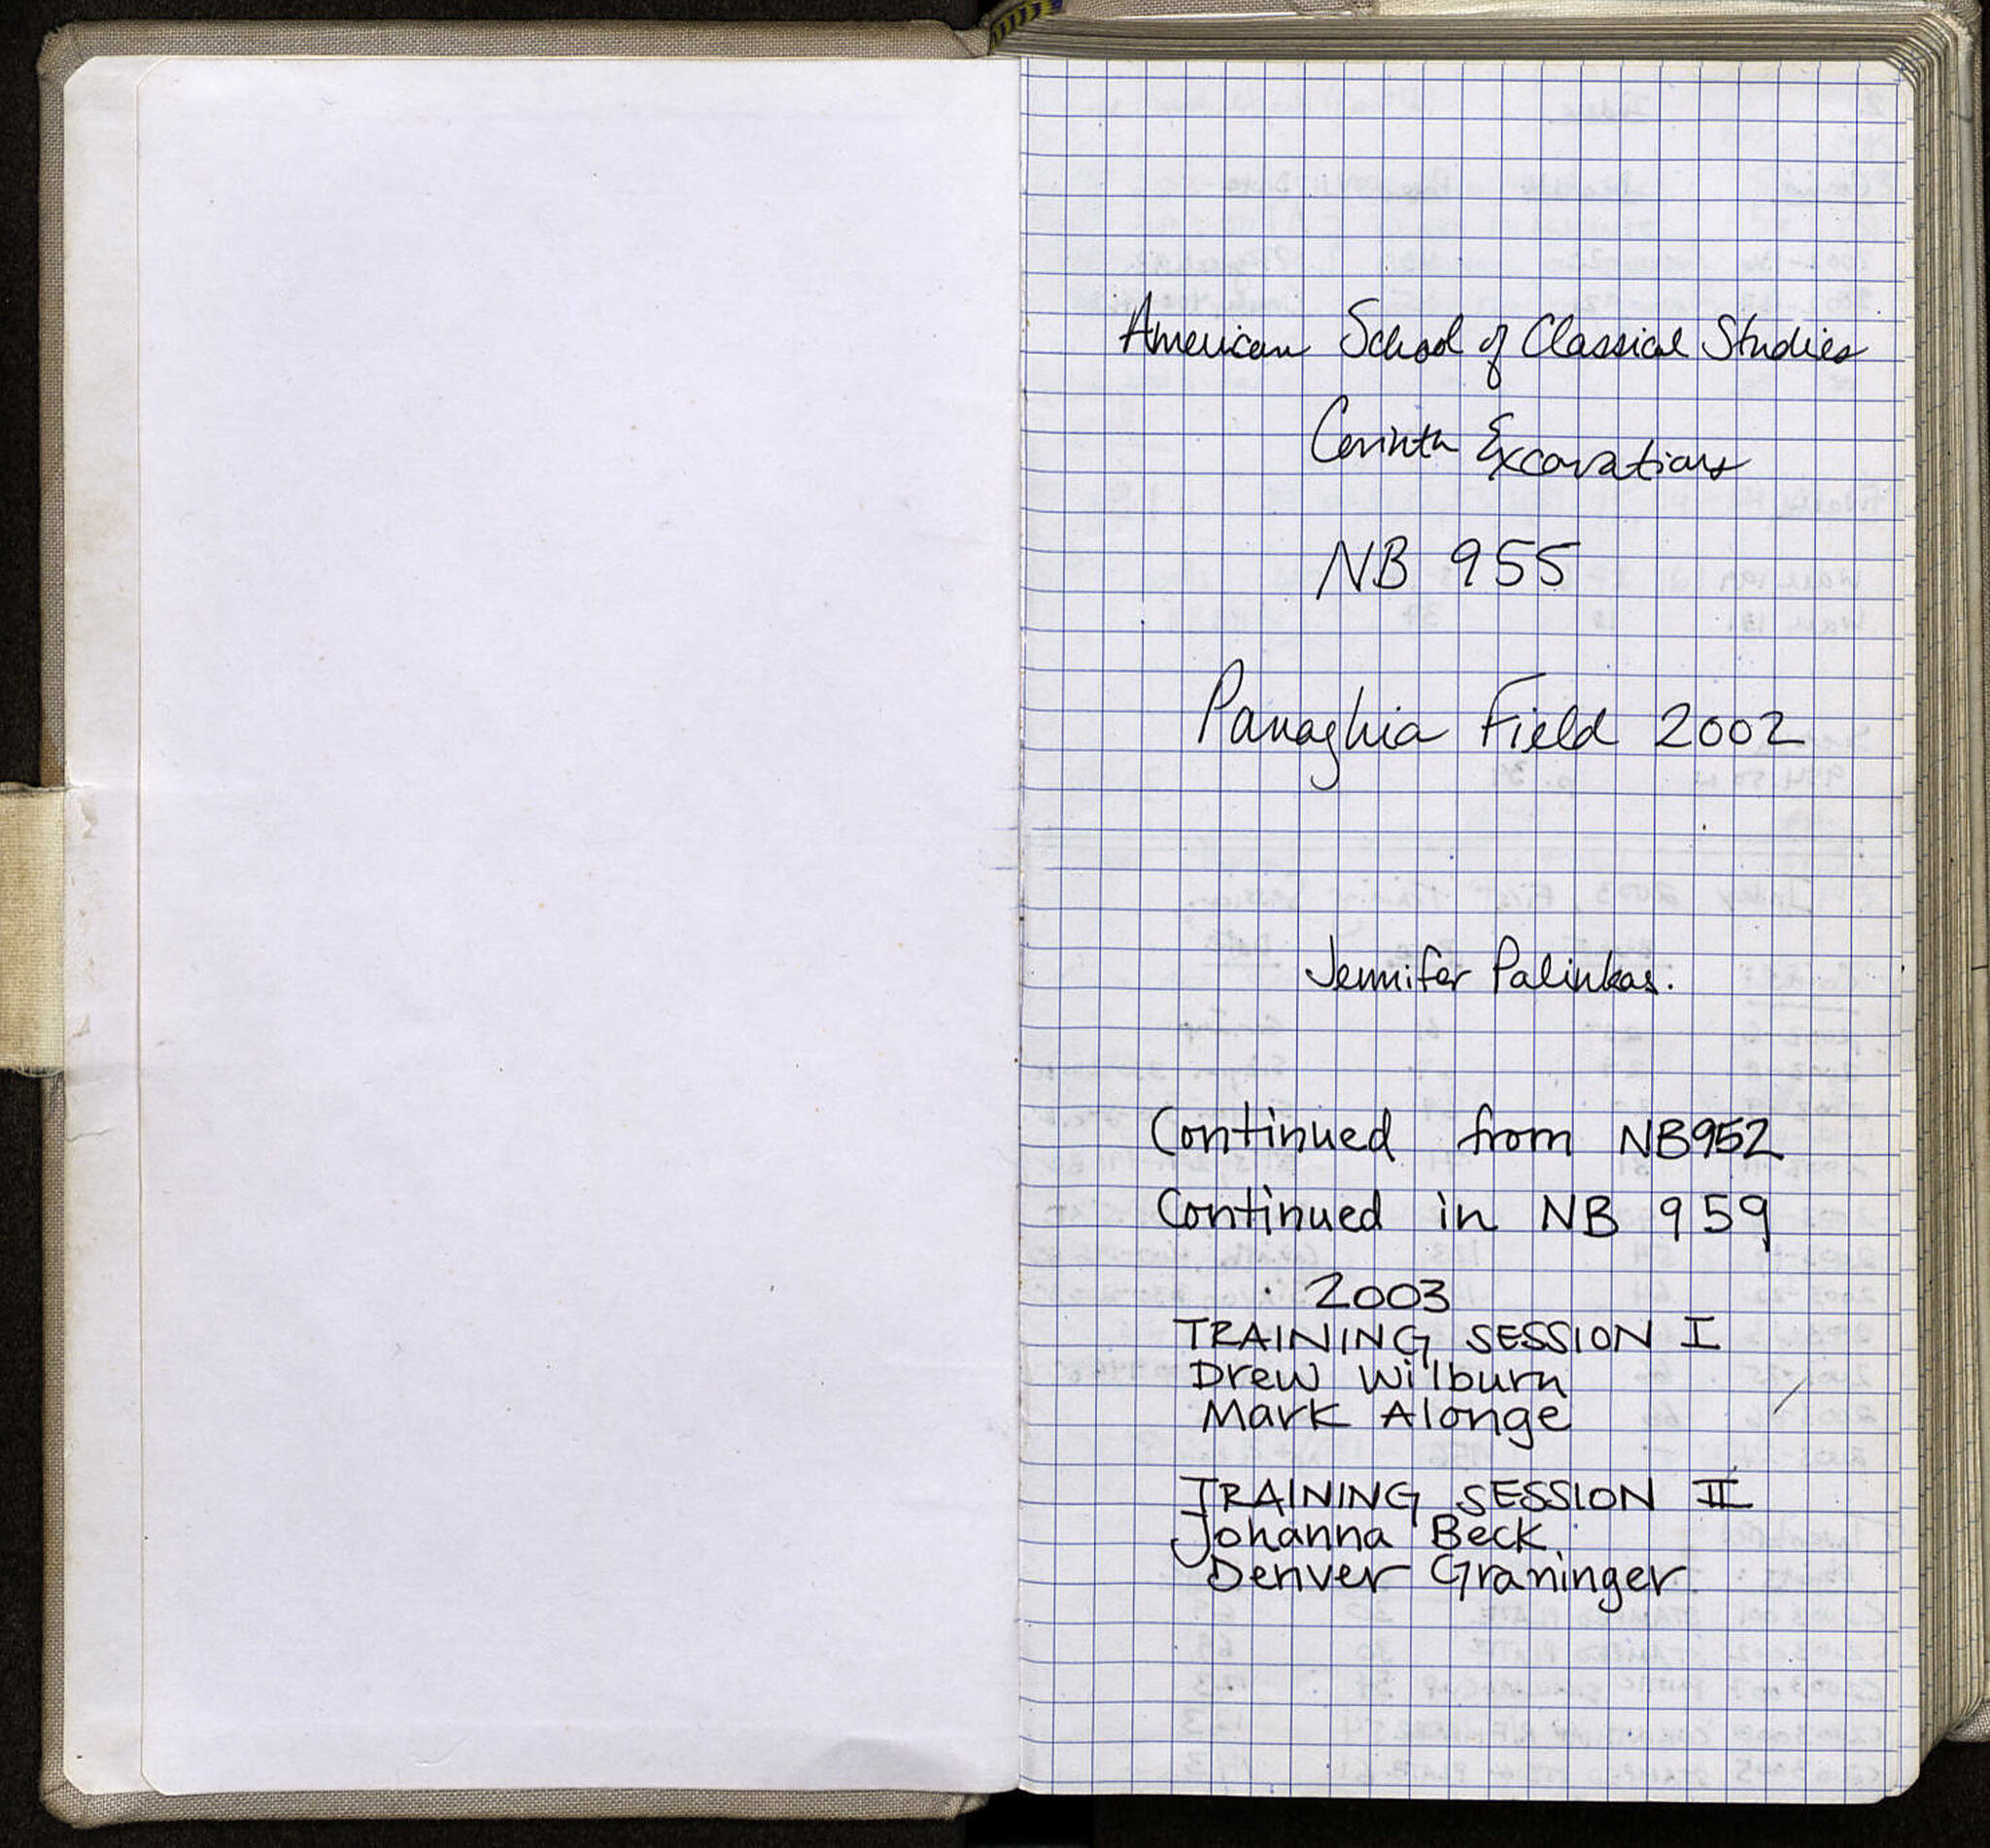 American School of Classical Studies
Corinth Excavations
NB 955
Panaghia Field 2002
Jennifer Palinkas.
Continued from NB952
Continued in NB 959
2003
TRAINING SESSION I
Drew Wilburn
Mark Alonge
TRAINING SESSION II
Johanna Beck
Denver Graninger